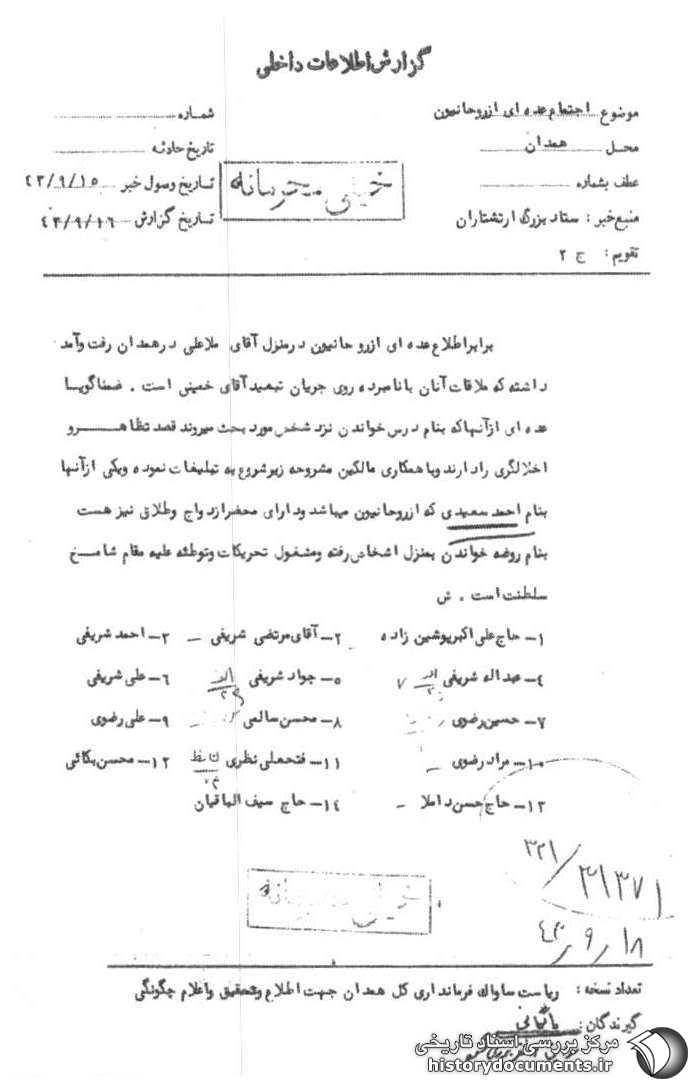 گزارش اطلاعات داخلی
موضوع اجتماع عده ای از روحانیون
شماره
محل همدان
تاریخ حادثه
خیلی محرمانه
عطف بشماره
تاریخ وصول خبر ۴۳/۹/۱۵
منبع خبر : ستاد بزرگ ارتشتاران
تاریخ گزارش ۴۳/۹/۱۶
تقویم : ج ۲
برابر اطلاع عده ای از روحانیون در منزل آقای ملاعلی در همدان رفت وآمد
داشته که ملاقات آنان با نامبرده روی جریان تبعید آقای خمینی است . ضمنا گویا
عده ای از آنها که بنام درس خواندن نزد شخص مورد بحث میروند قصد تظاهر و
اخلالگری را دارند و با همکاری مالکین مشروحه زیر شروع به تبلیغات نموده ویکی از آنها
بنام احمد سعیدی که از روحانیون میباشد ودارای محضر ازدواج وطلاق نیز هست
بنام روضه خواندن بمنزل اشخاص رفته ومشغول تحریکات وتوطئه علیه مقام شامخ
سلطنت است . ش
۱- حاج علی اکبر پوشین زاده ۲- آقای مرتضی شریفی ۳- احمد شریفی
۴- عبداله شریفی ۵- جواد شریفی ۶- علی شریفی
۷- حسین رضوی ۸- محسن سالمی ۹- علی رضوی
۱۰- مراد رضوی ۱۱- فتحعلی نظری ۱۲- محسن بکائی
۱۳- حاج حسن داملا ۱۴- حاج سیف الباقیان
۳۲۱/
۳۱۳۷۱
خیلی محرمانه
۴۳/۹/۱۸
تعداد نسخه : ریاست ساواک فرمانداری کل همدان جهت اطلاع وتحقیق واعلام چگونگی
گیرندگان :
مرکز بررسی اسناد تاریخی
historydocuments.ir